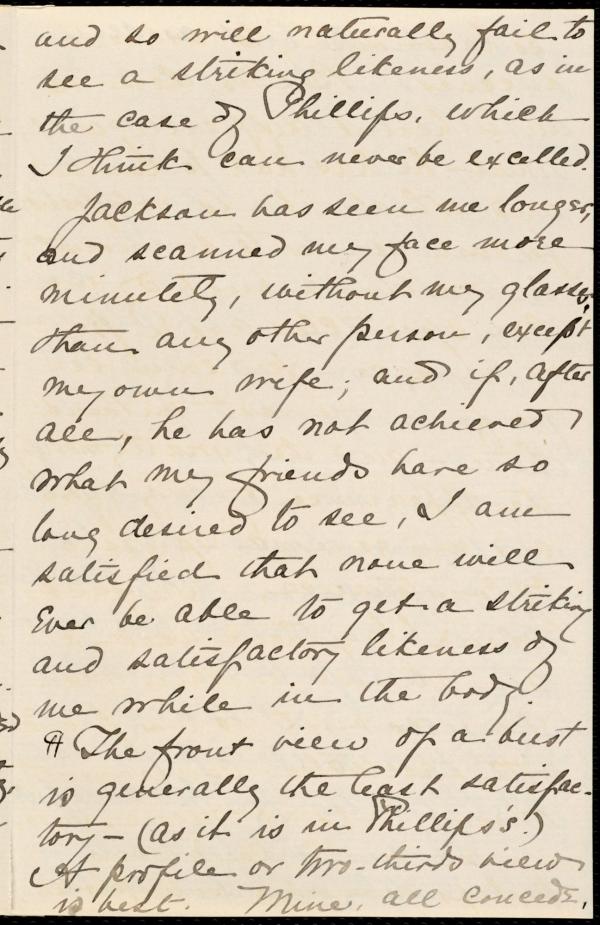 and so will naturally fail to
see a striking likeness, as in
the case of Phillips, which
I think can never be excelled.
Jackson has seen me longer,
and scanned my face more
minutely, without my glasses,
than any other person, except
my own wife; and if, after
all, he has not achieved
what my friends have so
long desired to see, I am
satisfied that none will
ever be able to get a striking
and satisfactory likeness of
me while in the body.
¶ The front view of a bust
is generally the least satisfac-
tory — (as it is in Phillips's.)
A profile or two-thirds view
is best. Mine, all concede,